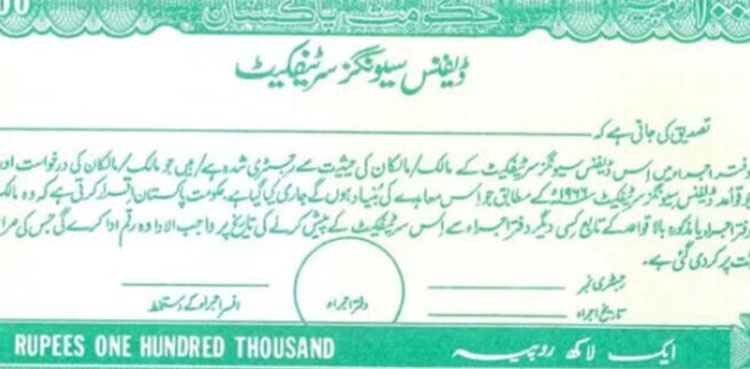 حکومت پاکستان
ڈیفنس سیونگز سرٹیفکیٹ
تصدیق کی جاتی ہے کہ
دفتر اجراء میں اِس ڈیفنس سیونگز سرٹیفکیٹ کے مالک/مالکان کی حیثیت سے رجسٹری شدہ ہے/ہیں جو مالک/مالکان کی درخواست اور
قواعد ڈیفنس سیونگز سرٹیفکیٹ ۱۹۶۶ء کے مطابق جو اس معاہدے کی بُنیاد ہوں گے جاری کیا گیا ہے حکومت پاکستان اقرار کرتی ہے کہ وہ مالک
دفتر اجراء یا مذکورہ بالا قواعد کے تابع کِسی دیگر دفتر اجراء سے اِس سرٹیفکیٹ کے پیش کرنے کی تاریخ پر واجب الادا وہ رقم ادا کرے گی جس کی
پر کر دی گئی ہے۔
رجسٹری نمبر
تاریخ اجراء
دفتر اجراء
افسر اجراء کے دستخط
RUPEES ONE HUNDRED THOUSAND
ایک لاکھ روپیہ